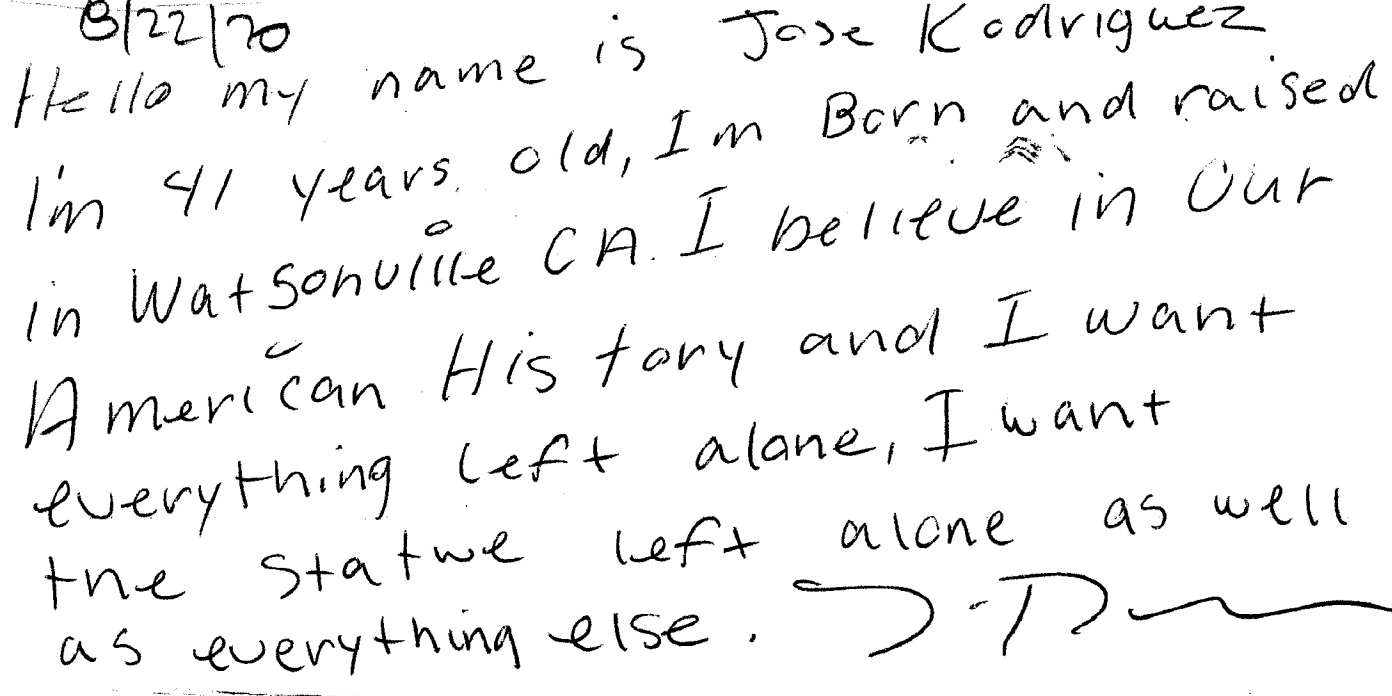 8/22/20
Hello my name is Jose Rodriguez
I'm 41 years old, Im Born and raised
in Watsonville CA. I believe in Our
American History and I want
everything left alone, I want
the statwe left alone as well
as everything else.